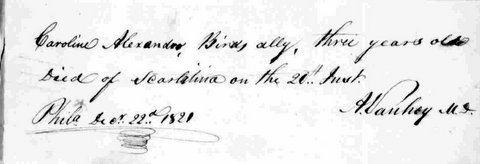 Caroline Alexander, Birds ally, three years old
Died of Scarlatina on the 20th Inst
Phila Decr. 22nd 1821 A. Vanhoy M.D.